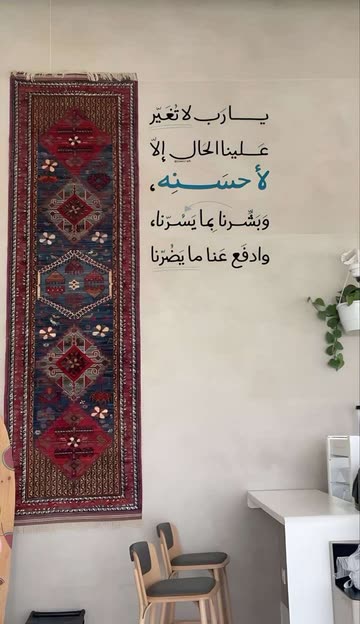 يا رَب لا تُغَيّر
عَلينا الحَال إلاّ
لأحسَنِه،
وَبَشِّرنا بِما يَسُرّنا،
وادفَع عَنا ما يَضُرّنا